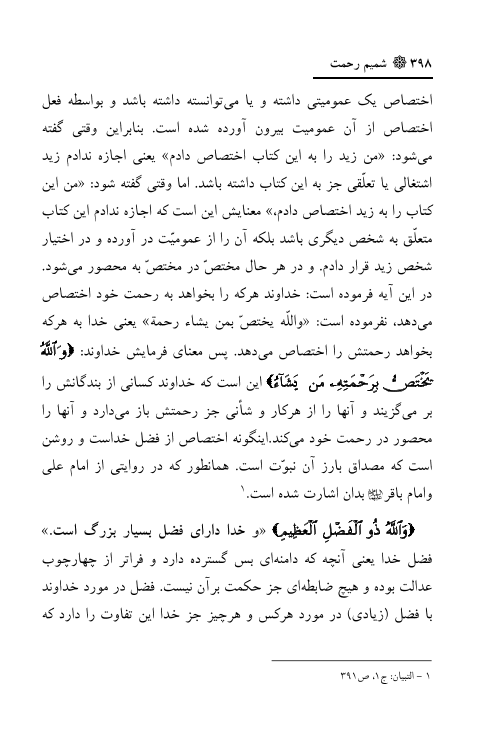 ۳۹۸ ❁ شمیم رحمت
اختصاص یک عمومیتی داشته و یا می‌توانسته داشته باشد و بواسطه فعل
اختصاص از آن عمومیت بیرون آورده شده است. بنابراین وقتی گفته
می‌شود: «من زید را به این کتاب اختصاص دادم» یعنی اجازه ندادم زید
اشتغالی یا تعلّقی جز به این کتاب داشته باشد. اما وقتی گفته شود: «من این
کتاب را به زید اختصاص دادم.» معنایش این است که اجازه ندادم این کتاب
متعلّق به شخص دیگری باشد بلکه آن را از عمومیّت در آورده و در اختیار
شخص زید قرار دادم. و در هر حال مختصّ در مختصّ به محصور می‌شود.
در این آیه فرموده است: خداوند هرکه را بخواهد به رحمت خود اختصاص
می‌دهد، نفرموده است: «واللّه یختصّ بمن یشاء رحمة» یعنی خدا به هرکه
بخواهد رحمتش را اختصاص می‌دهد. پس معنای فرمایش خداوند: ﴿وَٱللَّهُ
يَخْتَصُّ بِرَحْمَتِهِۦ مَن يَشَآءُ﴾ این است که خداوند کسانی از بندگانش را
بر می‌گزیند و آنها را از هرکار و شأنی جز رحمتش باز می‌دارد و آنها را
محصور در رحمت خود می‌کند.اینگونه اختصاص از فضل خداست و روشن
است که مصداق بارز آن نبوّت است. همانطور که در روایتی از امام علی
وامام باقر بدان اشارت شده است.۱
﴿وَٱللَّهُ ذُو ٱلْفَضْلِ ٱلْعَظِيمِ﴾ «و خدا دارای فضل بسیار بزرگ است.»
فضل خدا یعنی آنچه که دامنه‌ای بس گسترده دارد و فراتر از چهارچوب
عدالت بوده و هیچ ضابطه‌ای جز حکمت برآن نیست. فضل در مورد خداوند
با فضل (زیادی) در مورد هرکس و هرچیز جز خدا این تفاوت را دارد که
۱ - التبیان: ج۱، ص۳۹۱